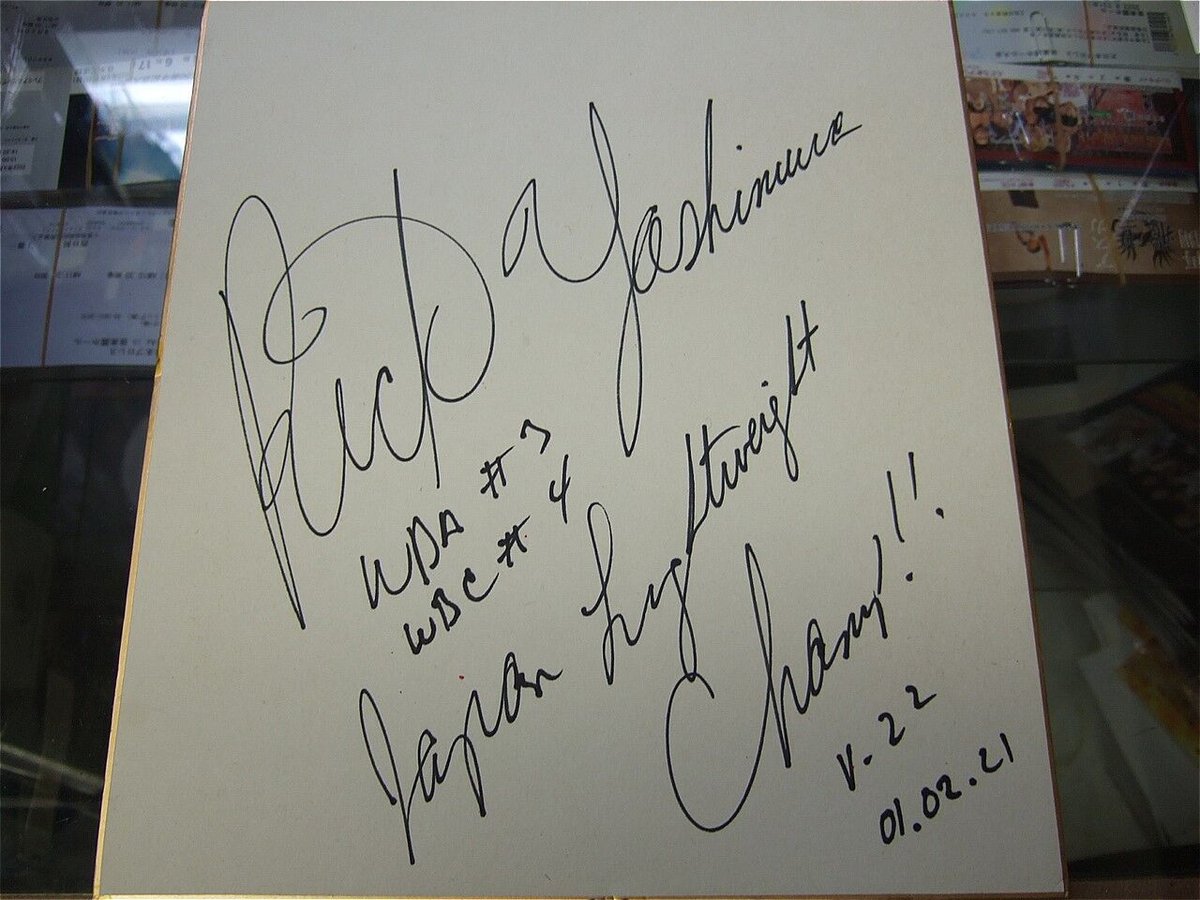 Rick Yoshimura
WBA #3
WBC #4
Japan Lightweight
Champ!!
V-22
01.02.21